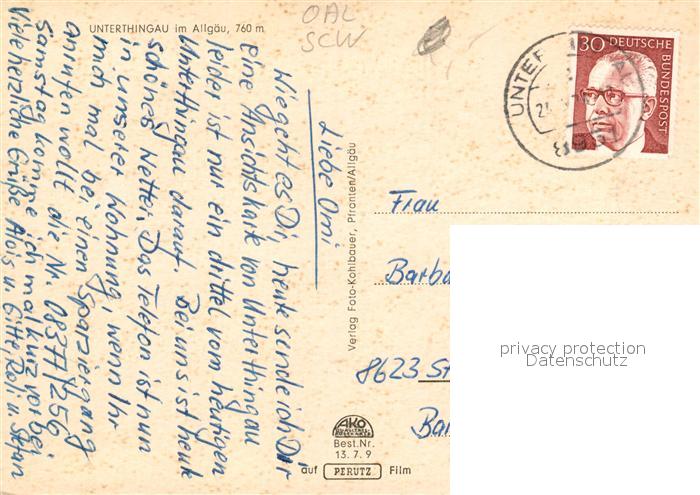 UNTERTHINGAU im Allgäu, 760 m
OAL
SCW
30 DEUTSCHE BUNDESPOST
Liebe Omi!
Wie geht es Dir, heute sende ich Dir
eine Ansichtskarte von Unterthingau
leider ist nur ein drittel vom heutigen
Unterthingau darauf. Bei uns ist heute
schönes Wetter. Das Telefon ist nun
in unserer Wohnung, wenn Ihr
mich mal bei einen Spaziergang
anrufen wollt die Nr. 08377/256
Samstag komme ich mal kurz vorbei
Viele herzliche Grüße Alois u. Gitte,
Verlag Foto-Kohlbauer, Pfronten/Allgäu
Frau
Barba
8623 St
Ba
privacy protection
Datenschutz
AKO
Best.Nr.
13.7.9
auf PERUTZ Film